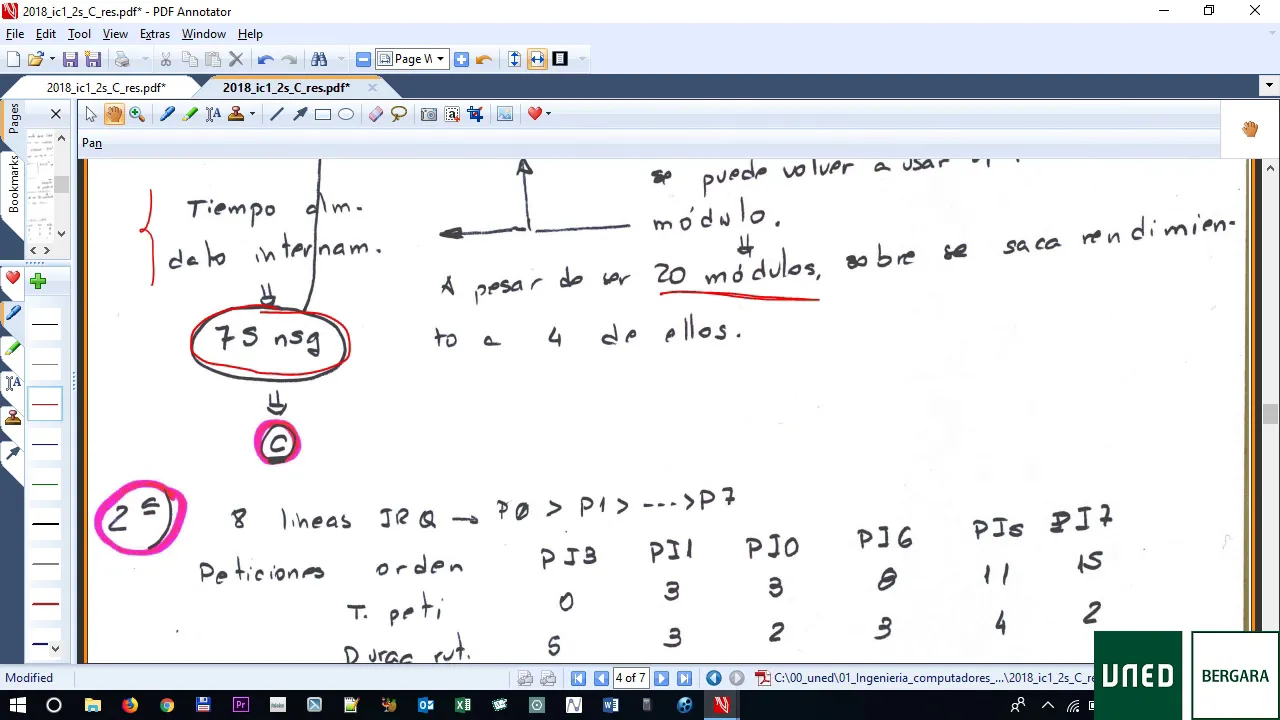 2018_ic1_2s_C_res.pdf* - PDF Annotator
File Edit Tool View Extras Window Help
Page W
2018_ic1_2s_C_res.pdf* 2018_ic1_2s_C_res.pdf*
Pages
Bookmarks
Pan
se puede volver a usar
módulo.
Tiempo alm.
dato internam.
A pesar de ser 20 módulos, sobre se saca rendimien-
to a 4 de ellos.
75 nsg
C
2º) 8 lineas IRQ → P0 > P1 > ---> P7
Peticiones orden PI3 PI1 PI0 PI6 PI5 PI7
T. peti 0 3 3 8 11 15
Durac rut. 5 3 2 3 4 2
Modified
4 of 7
C:\00_uned\01_Ingenieria_computadores_...\2018_ic1_2s_C_res.pdf
UNED
BERGARA